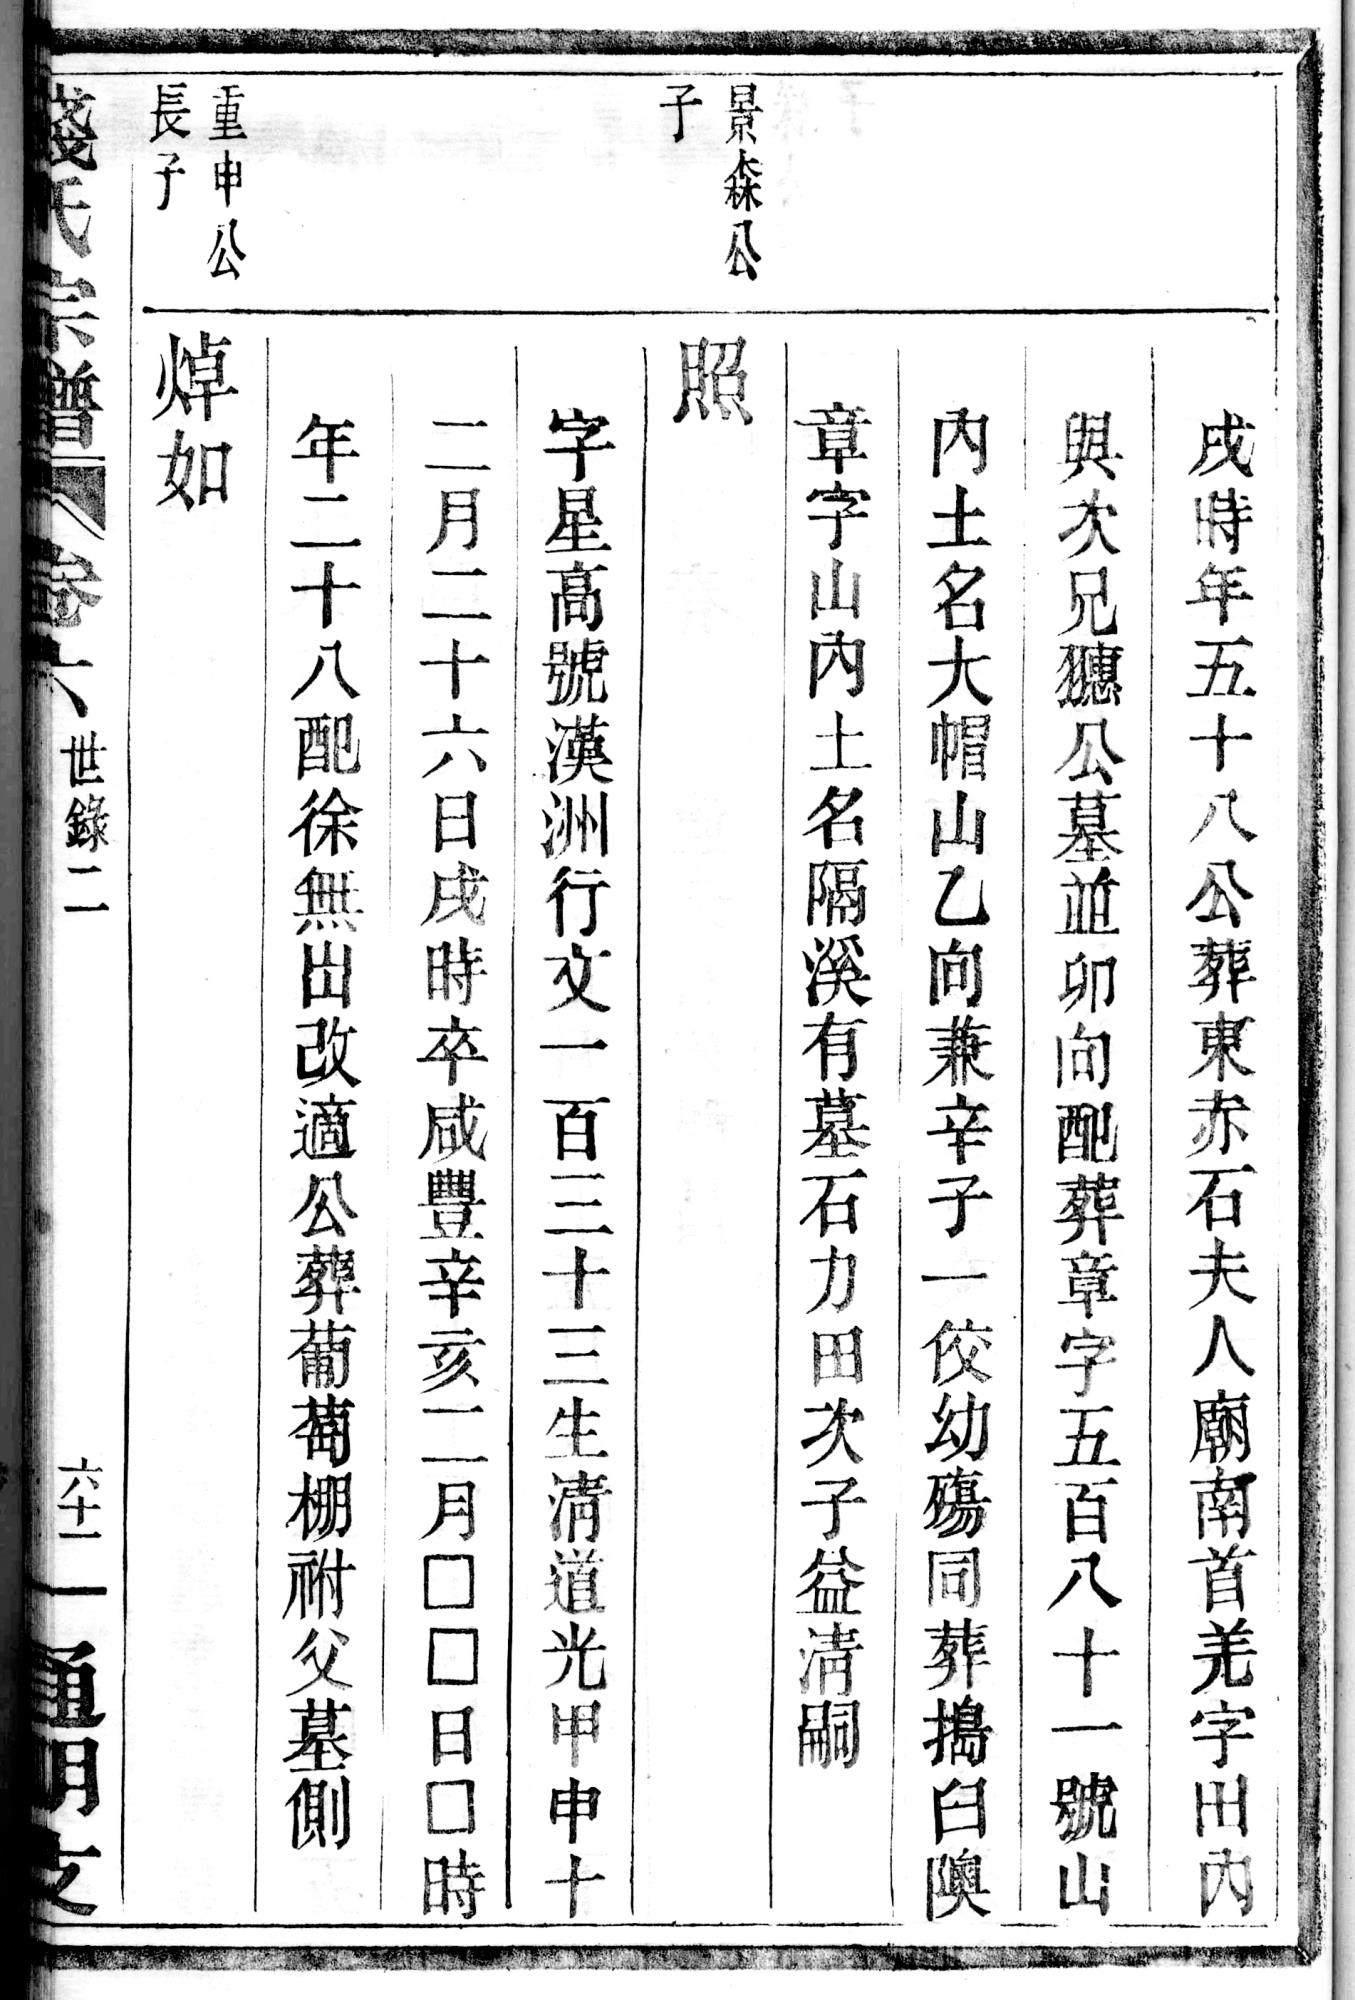 戌時年五十八公葬東赤石夫人廟南首羌字田內
與次兄獬公墓並卯向配葬章字五百八十一號山
內土名大帽山乙向兼辛子一佼幼殤同葬搗臼隩
章字山內土名隔溪有墓石力田次子益清嗣
景森公
子
照
字星高號漢洲行文一百三十三生清道光甲申十
二月二十六日戌時卒咸豐辛亥二月□□日□時
年二十八配徐無出改適公葬葡萄棚祔父墓側
重申公
長子
焯如
氏宗譜 卷六 世錄二 六十一 通明支